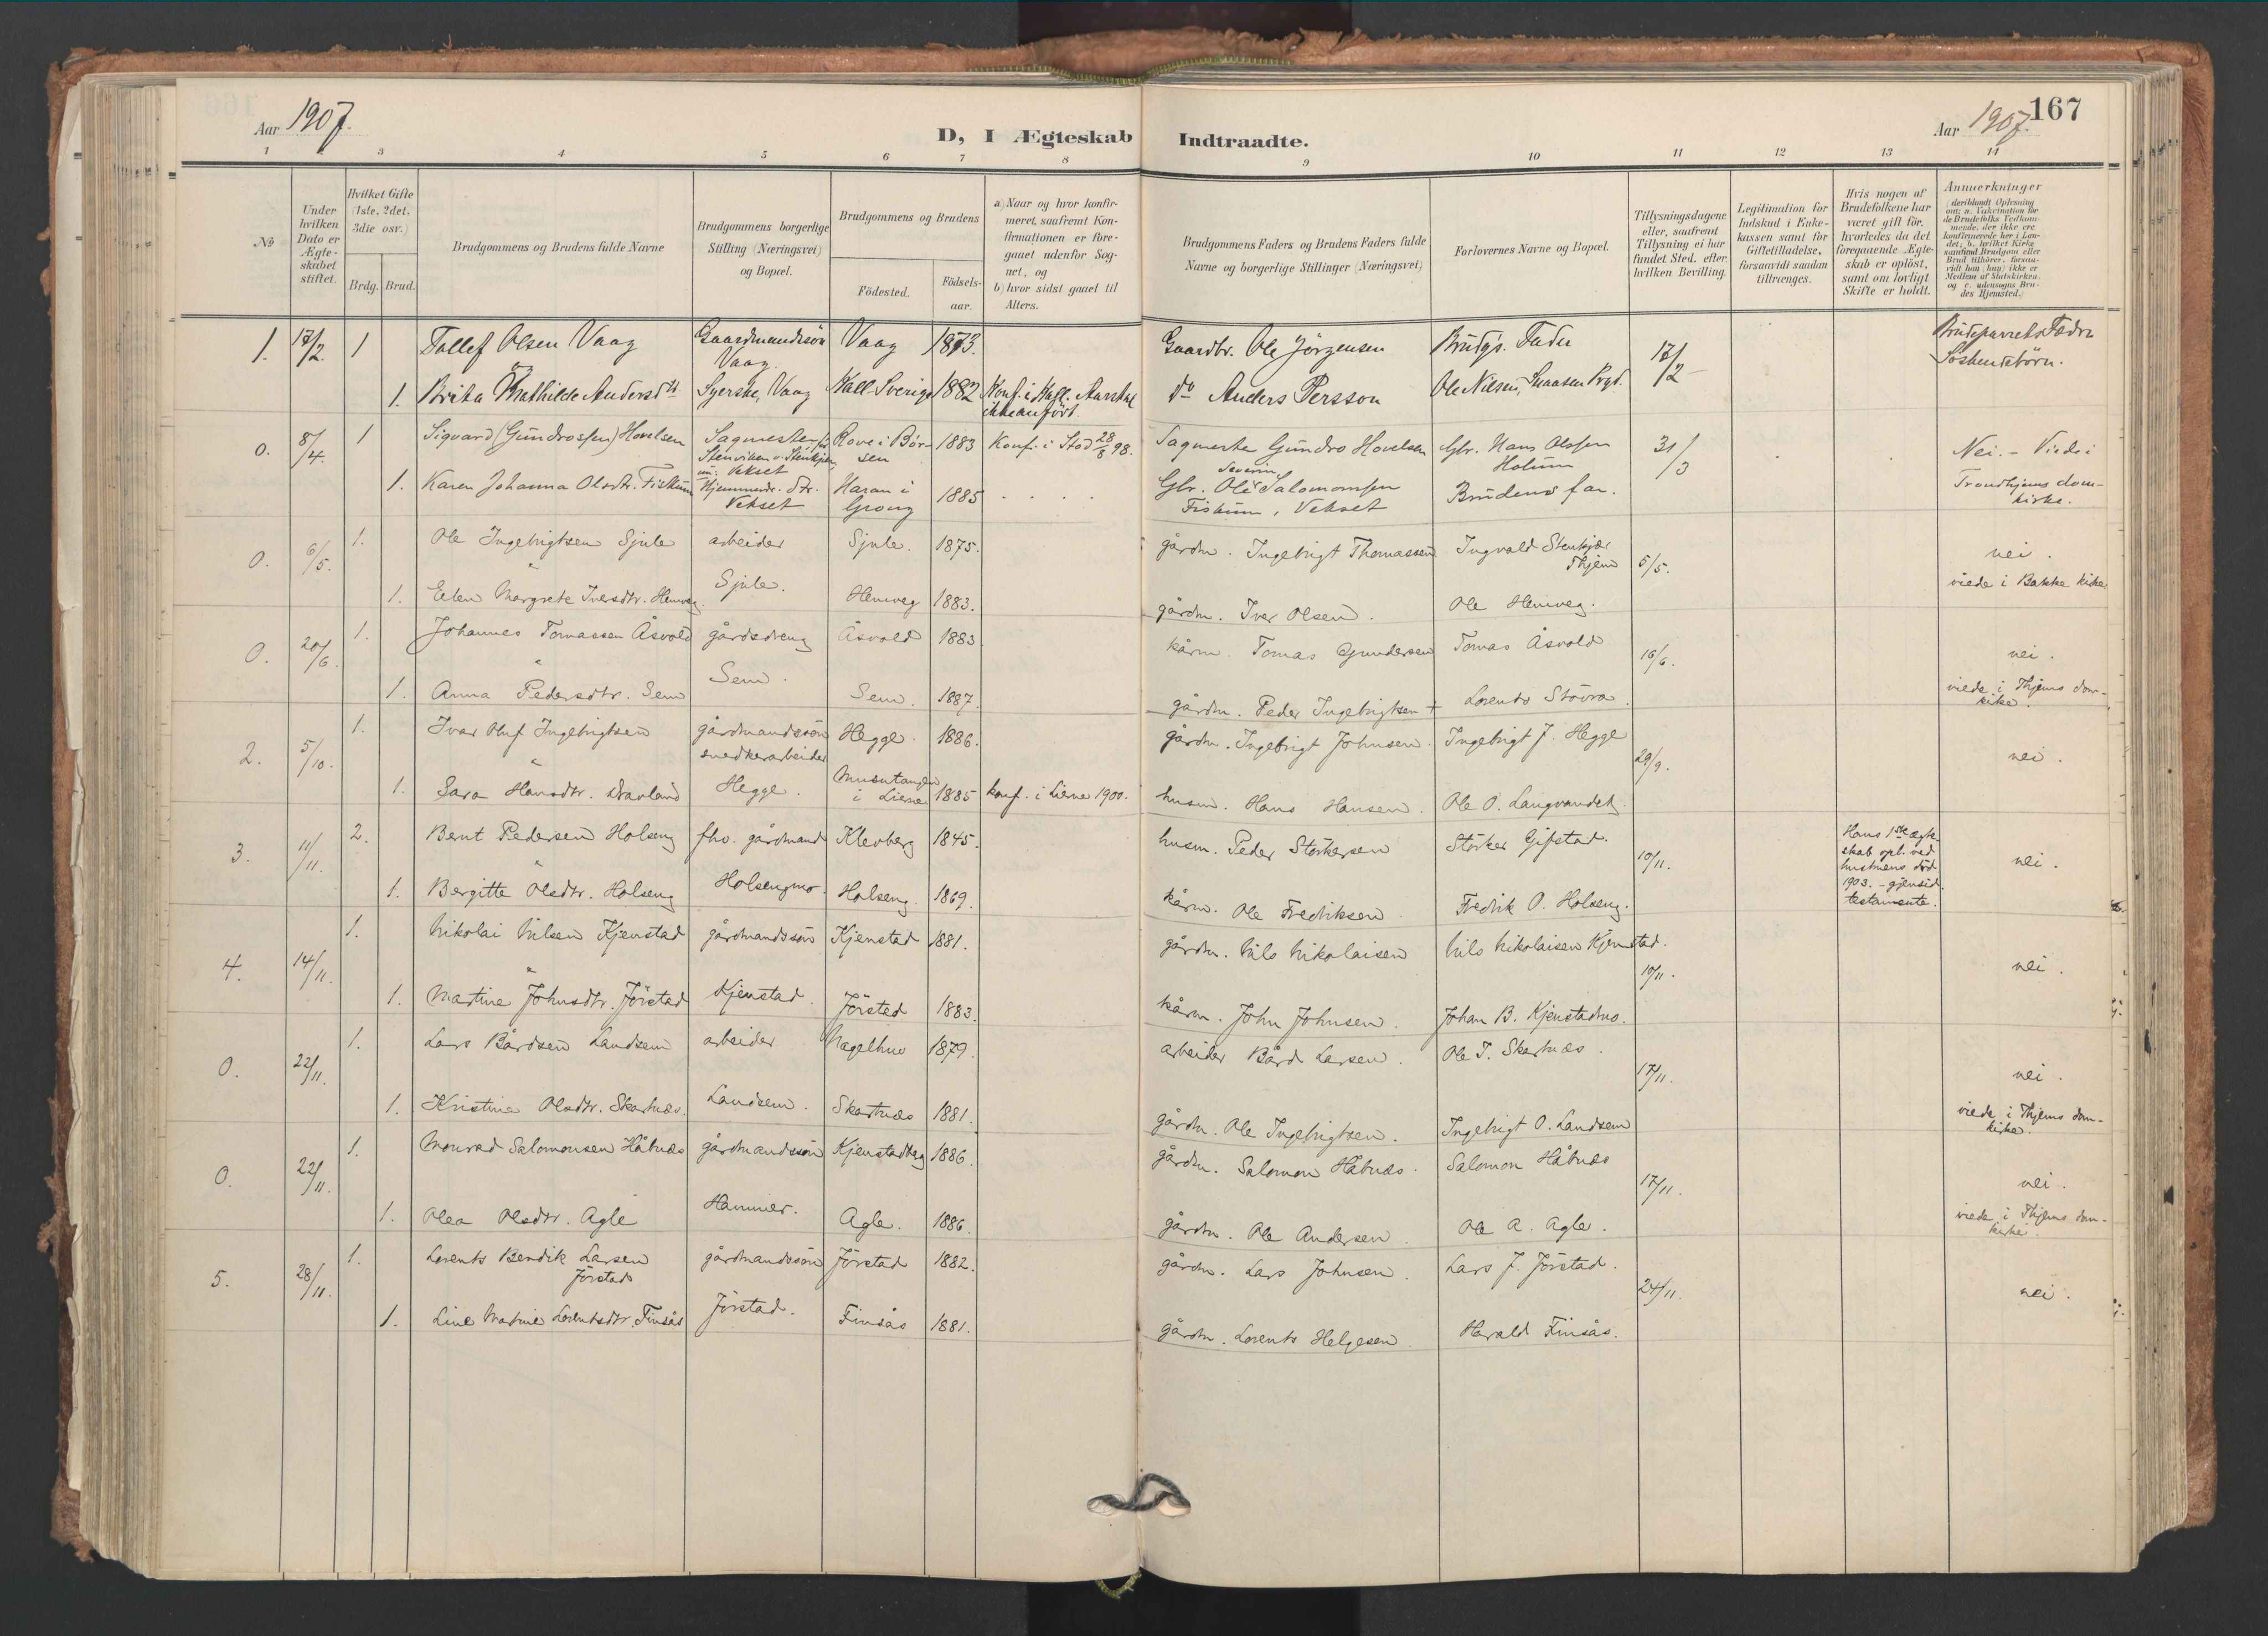 Aar 1907.
D, I Ægteskab Indtraadte.
Aar 1907.
167
1 2 3 4 5 6 7 8 9 10 11 12 13 14
No
Under
hvilken
Dato er
Ægte-
skabet
stiftet.
Hvilket Gifte
(1ste, 2det,
3die osv.)
Brdg. Brud.
Brudgommens og Brudens fulde Navne
Brudgommens borgerlige
Stilling (Næringsvei)
og Bopæl.
Brudgommens og Brudens
Födested.
Födsels-
aar.
a) Naar og hvor konfir-
meret, saafremt Kon-
firmationen er fore-
gaaet udenfor Sog-
net, og
b) hvor sidst gaaet til
Alters.
Brudgommens Faders og Brudens Faders fulde
Navne og borgerlige Stillinger (Næringsvei)
Forlovernes Navne og Bopæl.
Tillysningsdagene
eller, saafremt
Tillysning ei har
fundet Sted, efter
hvilken Bevilling.
Legitimation for
Indskud i Enke-
kassen samt for
Giftetilladelse,
forsaavidt saadan
tiltrænges.
Hvis nogen af
Brudefolkene har
været gift før,
hvorledes da det
foregaaende Ægte-
skab er oplöst,
samt om lovligt
Skifte er holdt.
Anmerkninger
(deriblandt Oplysning
om: a. Vakcination for
de Brudefolks Vedkom-
mende, der ikke ere
konfirmerede her i Lan-
det; b. hvilket Kirke
samfund Brudgom eller
Brud tilhörer, forsaa-
vidt han (hun) ikke er
Medlem af Statskirken.
og c. udensogns Bru-
des Hjemsted.)
1. 17/2 1 Tollef Olsen Vaag Gaardmandssön Vaag 1873. Gaardbr. Ole Jörgensen Brudgs. Fader 17/2 Brudeparrets Fædre
Vaag Söskendebörn.
og
1. Brita Mathilde Andersdtr Syerske, Vaag Kall-Sverige 1882 Konf. i Kall. Aarstal do Anders Persson Ole Nilsen, Snaasen Prgd.
ikke anfört.
0. 8/4. 1 Sigvard (Gundrossen) Hovelsen Sagmester Rove i Bør- 1883 Konf. i Stod 28/8 98. Sagmester Gundro Hovelsen Gbr. Hans Olssen 31/3 Nei. - Viede i
Stenviken v. Stenkjær, sen Holum Trondhjems dom-
nu: Vekset kirke.
1. Karen Johanna Olsdtr. Fiskum Hjemmevr. dtr. Haran i 1885 Gbr. Ole Severin Salomonsen Brudens far.
Vekset Grong Fiskum, Vekset
0. 6/5. 1. Ole Ingebrigtsen Sjule arbeider Sjule. 1875. gårdm. Ingebrigt Thomassen Ingvald Stenkjær 5/5. nei.
" Sjule. Thjem viede i Bakke kirke
1. Elen Margrete Iversdtr. Hemveg. Hemveg 1883. gårdm. Iver Olsen. Ole Hemveg.
0. 20/6. 1. Johannes Tomassen Åsvold gårdsdreng Åsvold 1883 kårm. Tomas Gundersen Tomas Åsvold 16/6. nei.
" Sem. viede i Thjems dom-
1. Anna Pedersdtr. Sem Sem. 1887. gårdm. Peder Ingebrigtsen + Lorents Stövra. kirke.
2. 5/10. 1. Ivar Oluf Ingebrigtsen gårdmandssön Hegge. 1886. gårdm. Ingebrigt Johnsen. Ingebrigt J. Hegge 29/9. nei.
" snedkerarbeider
1. Sara Hansdtr. Dravland Hegge. Musutangen 1885 konf. i Lierne 1900. husm. Hans Hansen. Ole O. Langvandet.
i Lierne
3. 11/11. 2. Bernt Pedersen Holseng fhv. gårdmand Klevberg 1845. husm. Peder Störkersen Störker Gifstad. 10/11. Hans 1ste ægte- nei.
" skab opl. ved
1. Bergitte Olsdtr. Holseng Holsengmo. Holseng. 1869. kårm. Ole Fredriksen Fredrik O. Holseng. hustruens död
1903. - gjensid.
testamente.
4. 14/11. 1. Nikolai Nilsen Kjenstad gårdmandssön Kjenstad 1881. gårdm. Nils Nikolaisen Nils Nikolaisen Kjenstad. 10/11. nei.
"
1. Martine Johnsdtr. Jörstad Kjenstad. Jörstad 1883. kårm. John Johnsen. Johan B. Kjenstadmo.
0. 22/11. 1. Lars Bårdsen Landsem arbeider Nagelhus 1879. arbeider Bård Larsen. Ole T. Skartnæs. 17/11. nei.
1. Kristine Olsdtr. Skartnæs. Landsem. Skartnæs 1881. gårdm. Ole Ingebrigtsen. Ingebrigt O. Landsem viede i Thjems dom-
kirke.
0. 22/11. 1. Monrad Salomonsen Håbnæs gårdmandssön Kjenstadberg 1886. gårdm. Salomon Håbnæs. Salomon Håbnæs 17/11. nei.
1. Olea Olsdtr. Agle Hammer. Agle. 1886. gårdm. Ole Andersen Ole A. Agle. viede i Thjems dom-
kirke.
5. 28/11. 1. Lorents Bendik Larsen gårdmandssön Jörstad 1882. gårdm. Lars Johnsen. Lars J. Jörstad. 24/11. nei.
Jörstad
1. Line Martine Lorentsdtr. Finsås Jörstad. Finsås 1881. gårdm. Lorents Helgesen. Harald Finsås.